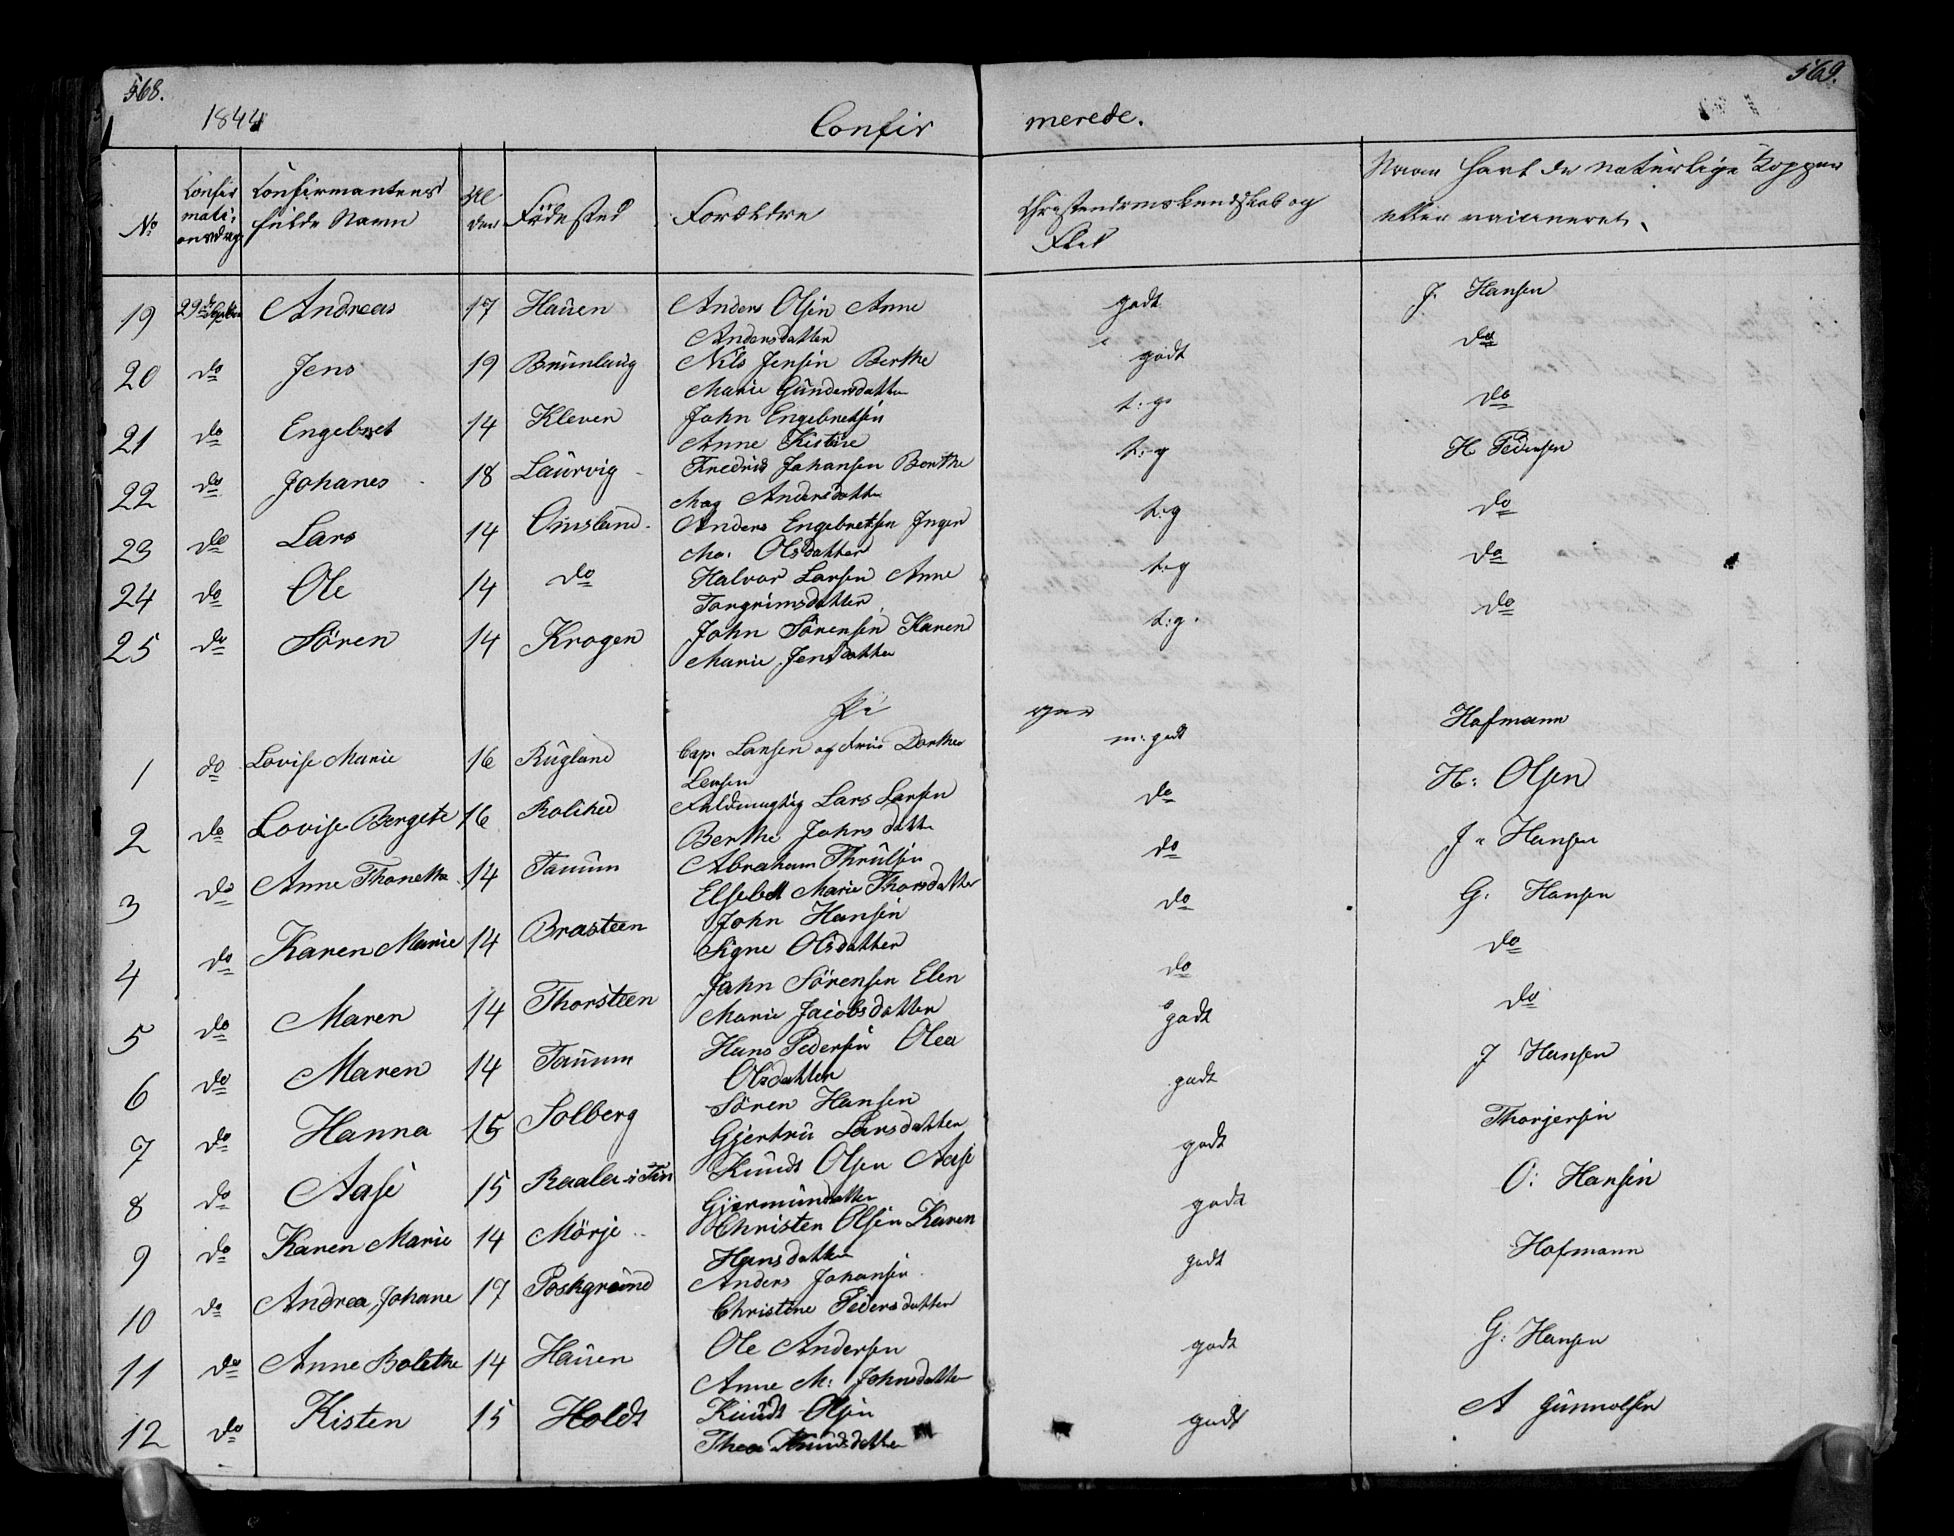 568.
569.
1844
Confir merede.
No
Confir mati= onsdag
Confirmantens fulde Navn
Al der
Födested
Forældre
Christendomskundskab og Flid
Naar havt de naturlige Kopper eller vaccineret.
19 29de Septbr Andreas 17 Hauen Anders Olsen Anne godt J. Hansen
Andersdatter
20 do Jens 19 Brunlaug Nils Jensen Berthe godt do
Marie Gundersdatter
21 do Engebret 14 Kleven John Engebretsen t: g. do
Anne Kistine
22 do Johanes 18 Laurvig Fredrik Johansen Berthe t: g H Pedersen
Mag Andersdatter
23 do Lars 14 Omsland. Anders Engebretsen Inger t:g do
Ma: Olsdatter
24 do Ole 14 do Halvor Larsen Anne t:g do
Torgrimsdatter
25 do Sören 14 Krogen John Sörensen Karen t:g. do
Marie Jensdatter
Pi ger
1 do Lovise Marie 16 Rugland Cap. Larsen og frue Dorthea m: godt Hofmann
Larsen
2 do Lovise Bergete 16 Roliked Lars Larsen do H: Olsen
Berthe Johnsdatt
3 do Anne Thonette 14 Tanum Abraham Thrulsen do J. Hansen
Elsebet Marie Thorsdatter
4 do Karen Marie 14 Brasteen John Hansen do G: Hansen
Signe Olsdatter
5 do Maren 14 Thorsteen John Sörensen Elen do do
Marie Jacobsdatter
6 do Maren 14 Tanum Hans Pedersen Olea godt do
Olsdatter
7 do Hanna 15 Solberg Sören Hansen godt J Hansen
Gjertru Larsdatter
8 do Aase 15 Knuds Olsen Aase godt Thorjersen
Gjermundsdatter
9 do Karen Marie 14 Mörje Christen Olsen Karen godt O: Hansen
Hansdatter
10 do Andrea Johane 17 Poshgrund Anders Johansen. godt Hofmann
Christine Pedersdatter
11 do Anne Bolethe 14 Hauen Ole Andersen godt G: Hansen
Anne M: Johnsdatter
12 do Kisten 15 Holdt Knudt Olsen godt A Gunnolsen
Thea Knudsdatter